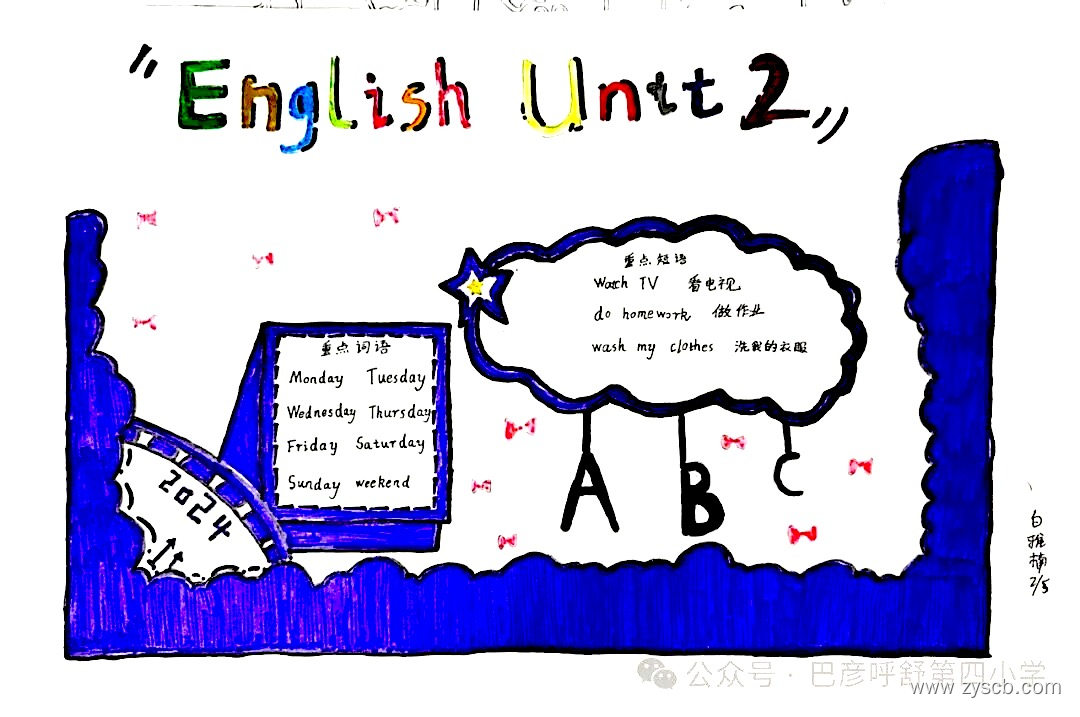 "English Unit 2"
重点短语
Watch TV 看电视
do homework 做作业
wash my clothes 洗我的衣服
重点词语
Monday Tuesday
Wednesday Thursday
Friday Saturday
Sunday weekend
2024
A B C
白雅楠
2/5
公众号·巴彦呼舒第四小学
www.zyscb.com